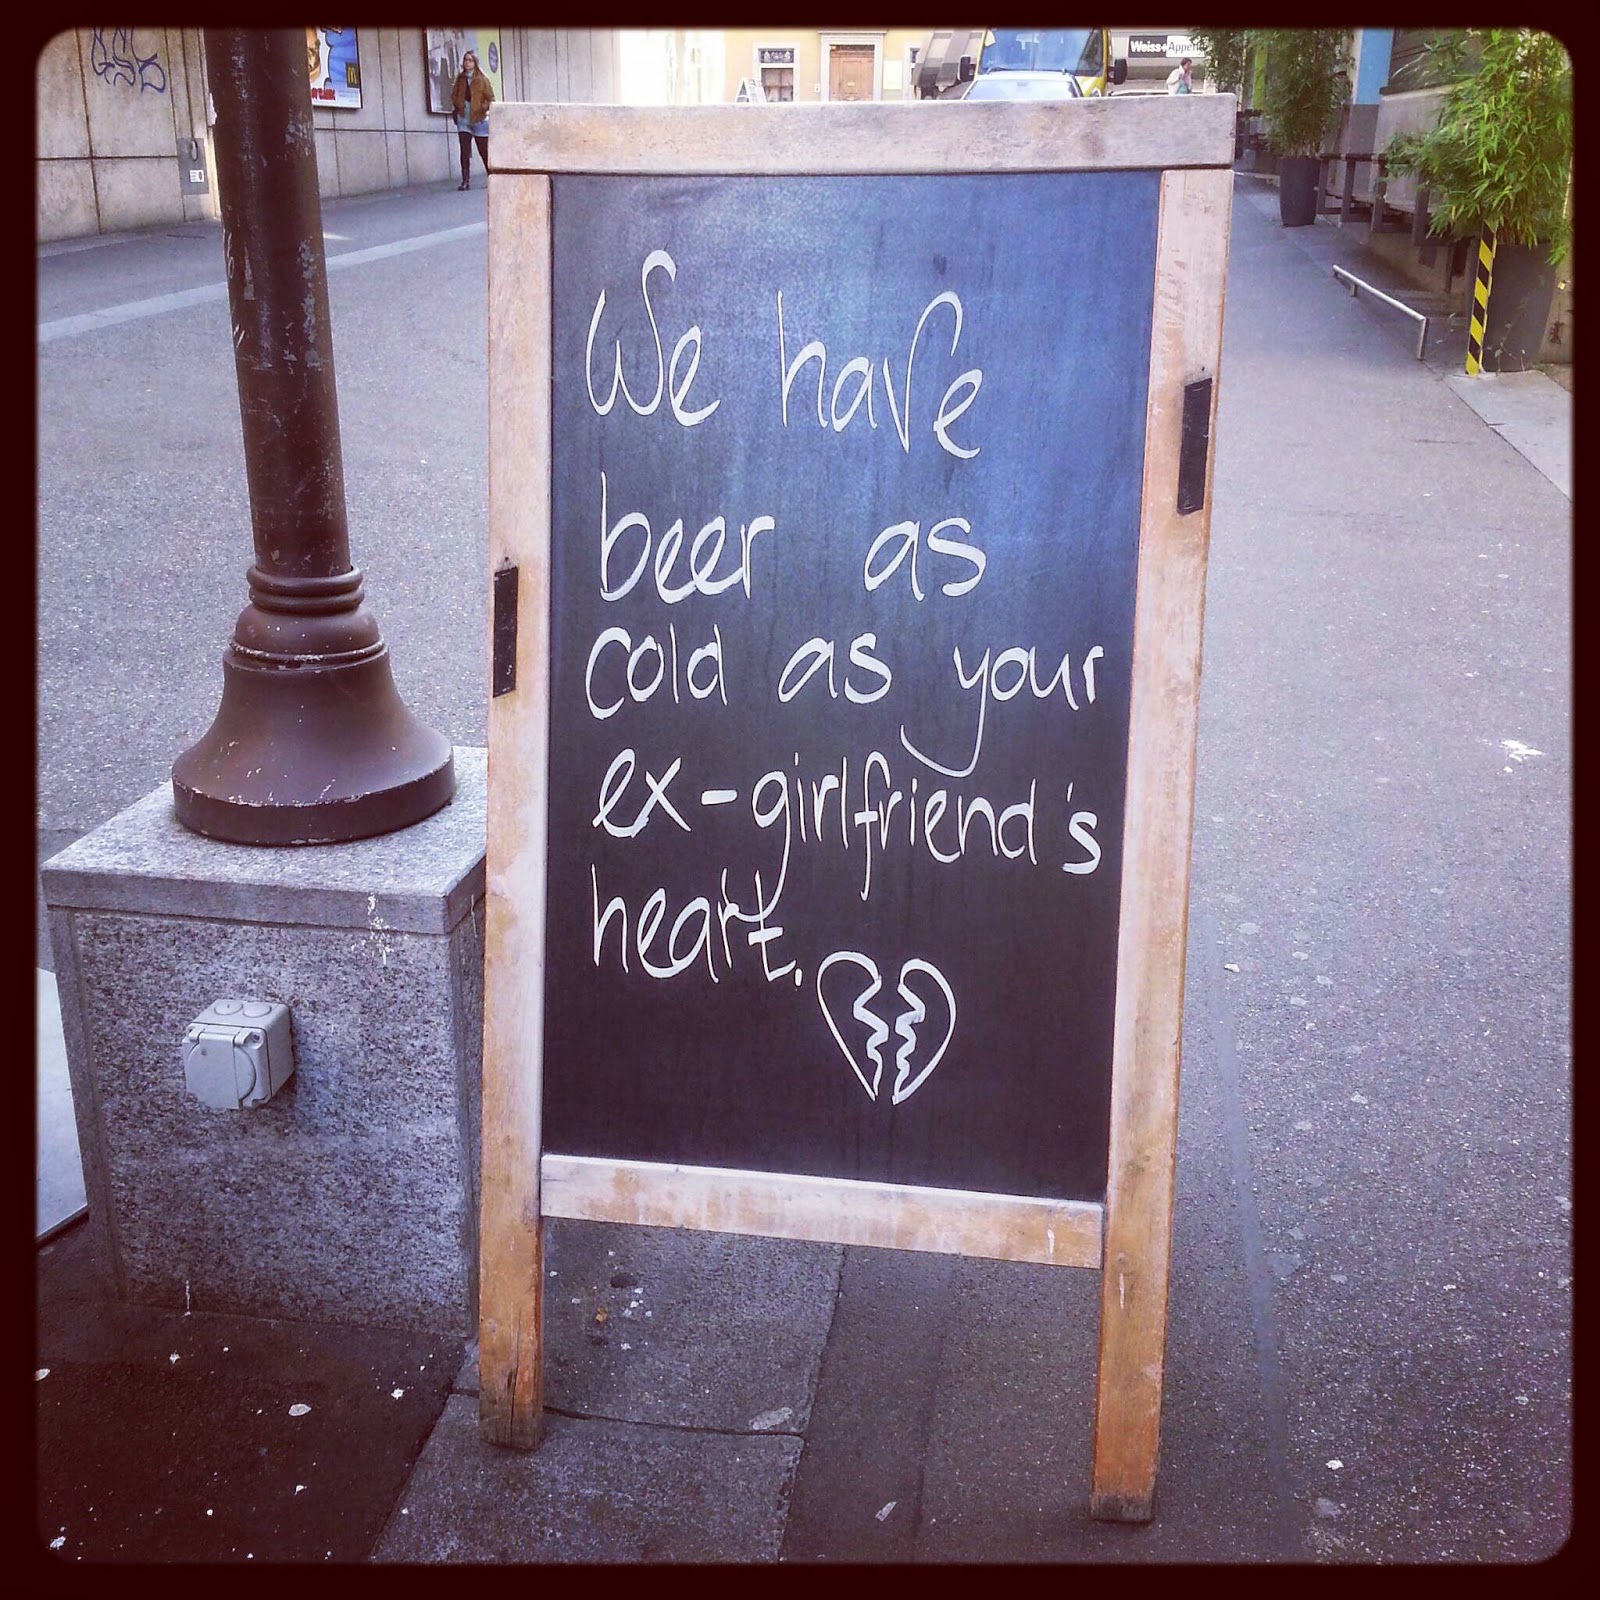 Weiss+Appe
We have
beer as
cold as your
ex-girlfriend's
heart.